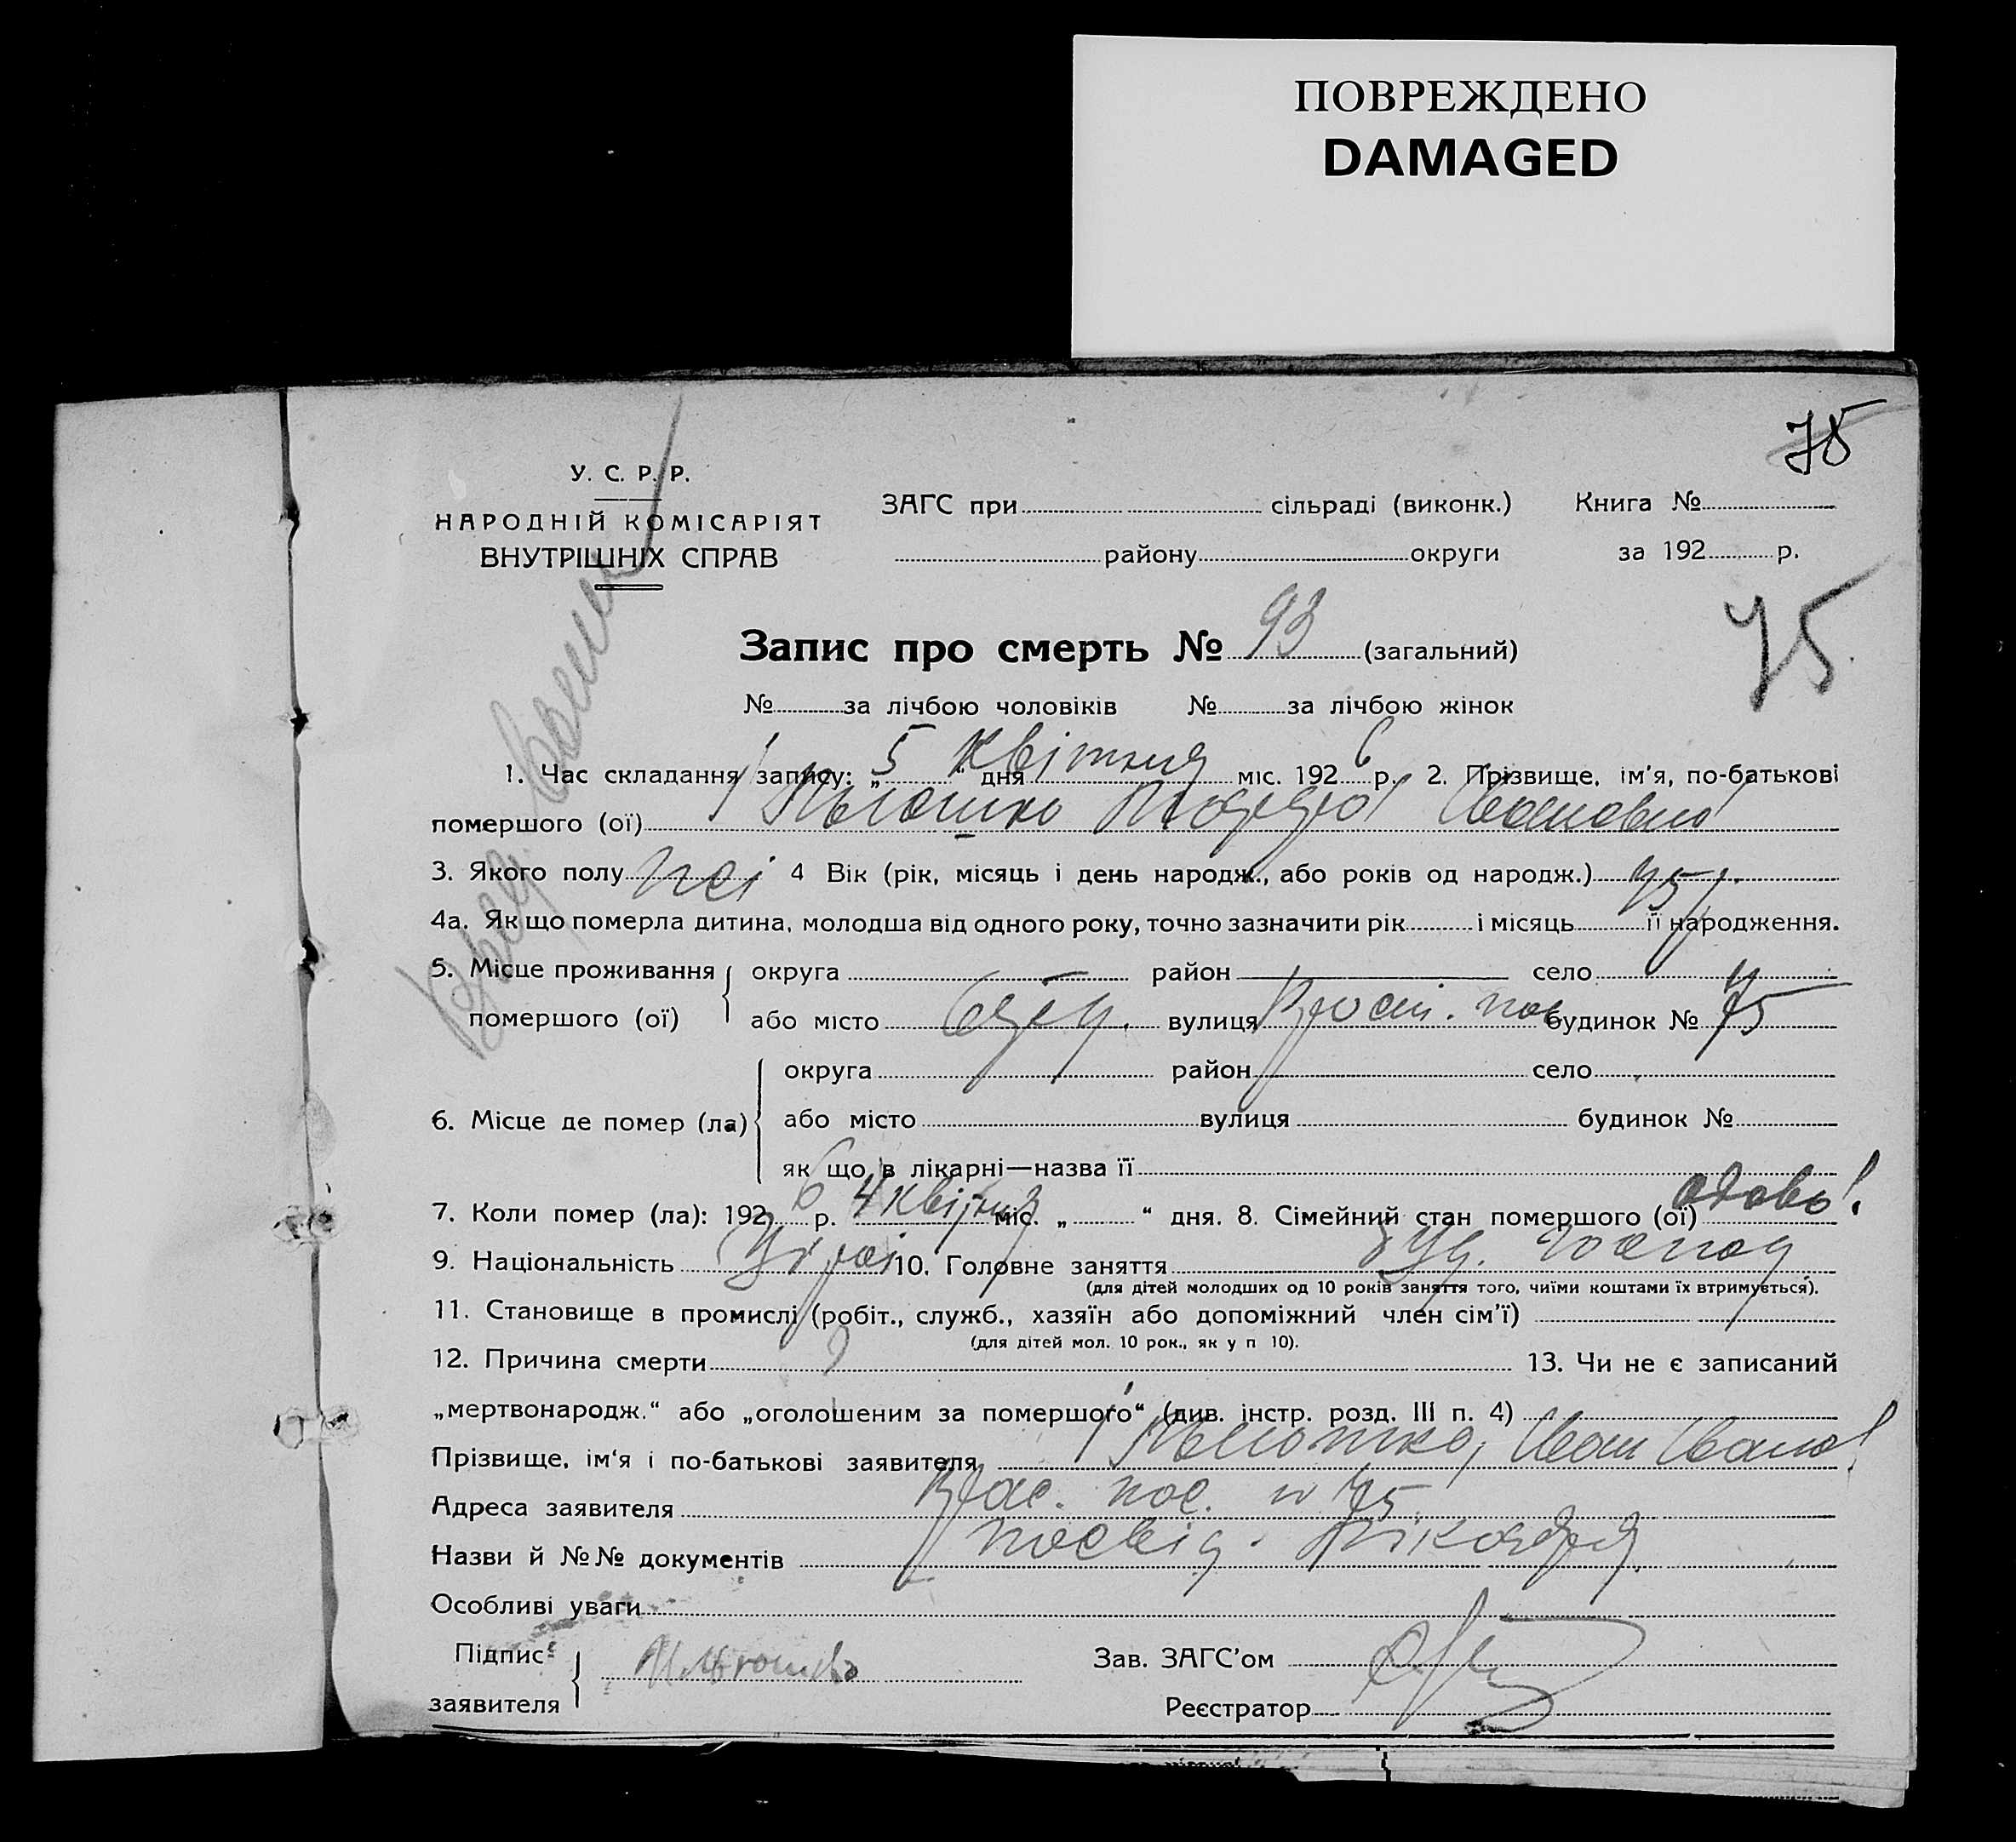 ПОВРЕЖДЕНО
DAMAGED
75
У. С. Р. Р.
НАРОДНІЙ КОМІСАРІЯТ
ВНУТРІШНІХ СПРАВ
ЗАГС при сільраді (виконк.) Книга №
району округи за 192 р.
75
Запис про смерть № 93 (загальний)
№ за лічбою чоловіків № за лічбою жінок
1. Час складання запису: „5“ дня Квітня міс. 1926 р. 2. Прізвище, ім'я, по-батькові
помершого (ої) Ивановна
3. Якого полу жі 4 Вік (рік, місяць і день народж., або років од народж.) 75 р.
4а. Як що померла дитина, молодша від одного року, точно зазначити рік і місяць її народження.
5. Місце проживання
помершого (ої)
округа район село
або місто вулиця пос будинок № 75
6. Місце де помер (ла)
округа район село
або місто вулиця будинок №
як що в лікарні—назва її
7. Коли помер (ла): 1926 р. 4 Квітня міс. „ “ дня. 8. Сімейний стан помершого (ої) вдова
9. Національність 10. Головне заняття
(для дітей молодших од 10 років заняття того, чиїми коштами їх втримується).
11. Становище в промислі (робіт., служб., хазяїн або допоміжний член сім'ї)
(для дітей мол. 10 рок., як у п 10).
12. Причина смерти 13. Чи не є записаний
„мертвонародж.“ або „оголошеним за помершого“ (див. інстр. розд. III п. 4)
Прізвище, ім'я і по-батькові заявителя Иван Иванов
Адреса заявителя пос. № 75
Назви й №№ документів посвід.
Особливі уваги
Підпис
заявителя
Зав. ЗАГС'ом
Реєстратор